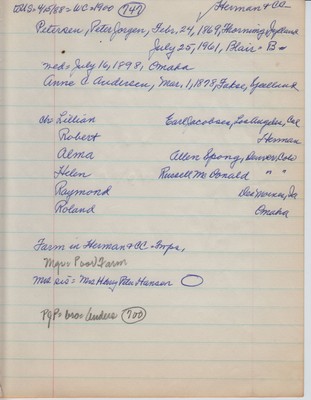 Herman + CC
toUS = 4/5/88 = WC = 1900 (747)
Petersen, Peter Jorgen, Febr. 24, 1869, Thorning Jydland
July 25, 1961, Blair = B
md = July 16, 1898, Omaha
Anne C Andersen, Mar. 1, 1878, Fakse, Sjaelland
ch Lillian Earl Jacobsen, Los Angeles, Cal
Robert Herman
Alma Allen Spong, Denver, Colo
Helen Russell Mc Donald " "
Raymond Des Moines, Ia
Roland Omaha
Farm in Herman + CC = Imps,
Mgr = Poor Farm
Mrs sis = Mrs Henry Peter Hansen
PJP = bro = Anders (700)